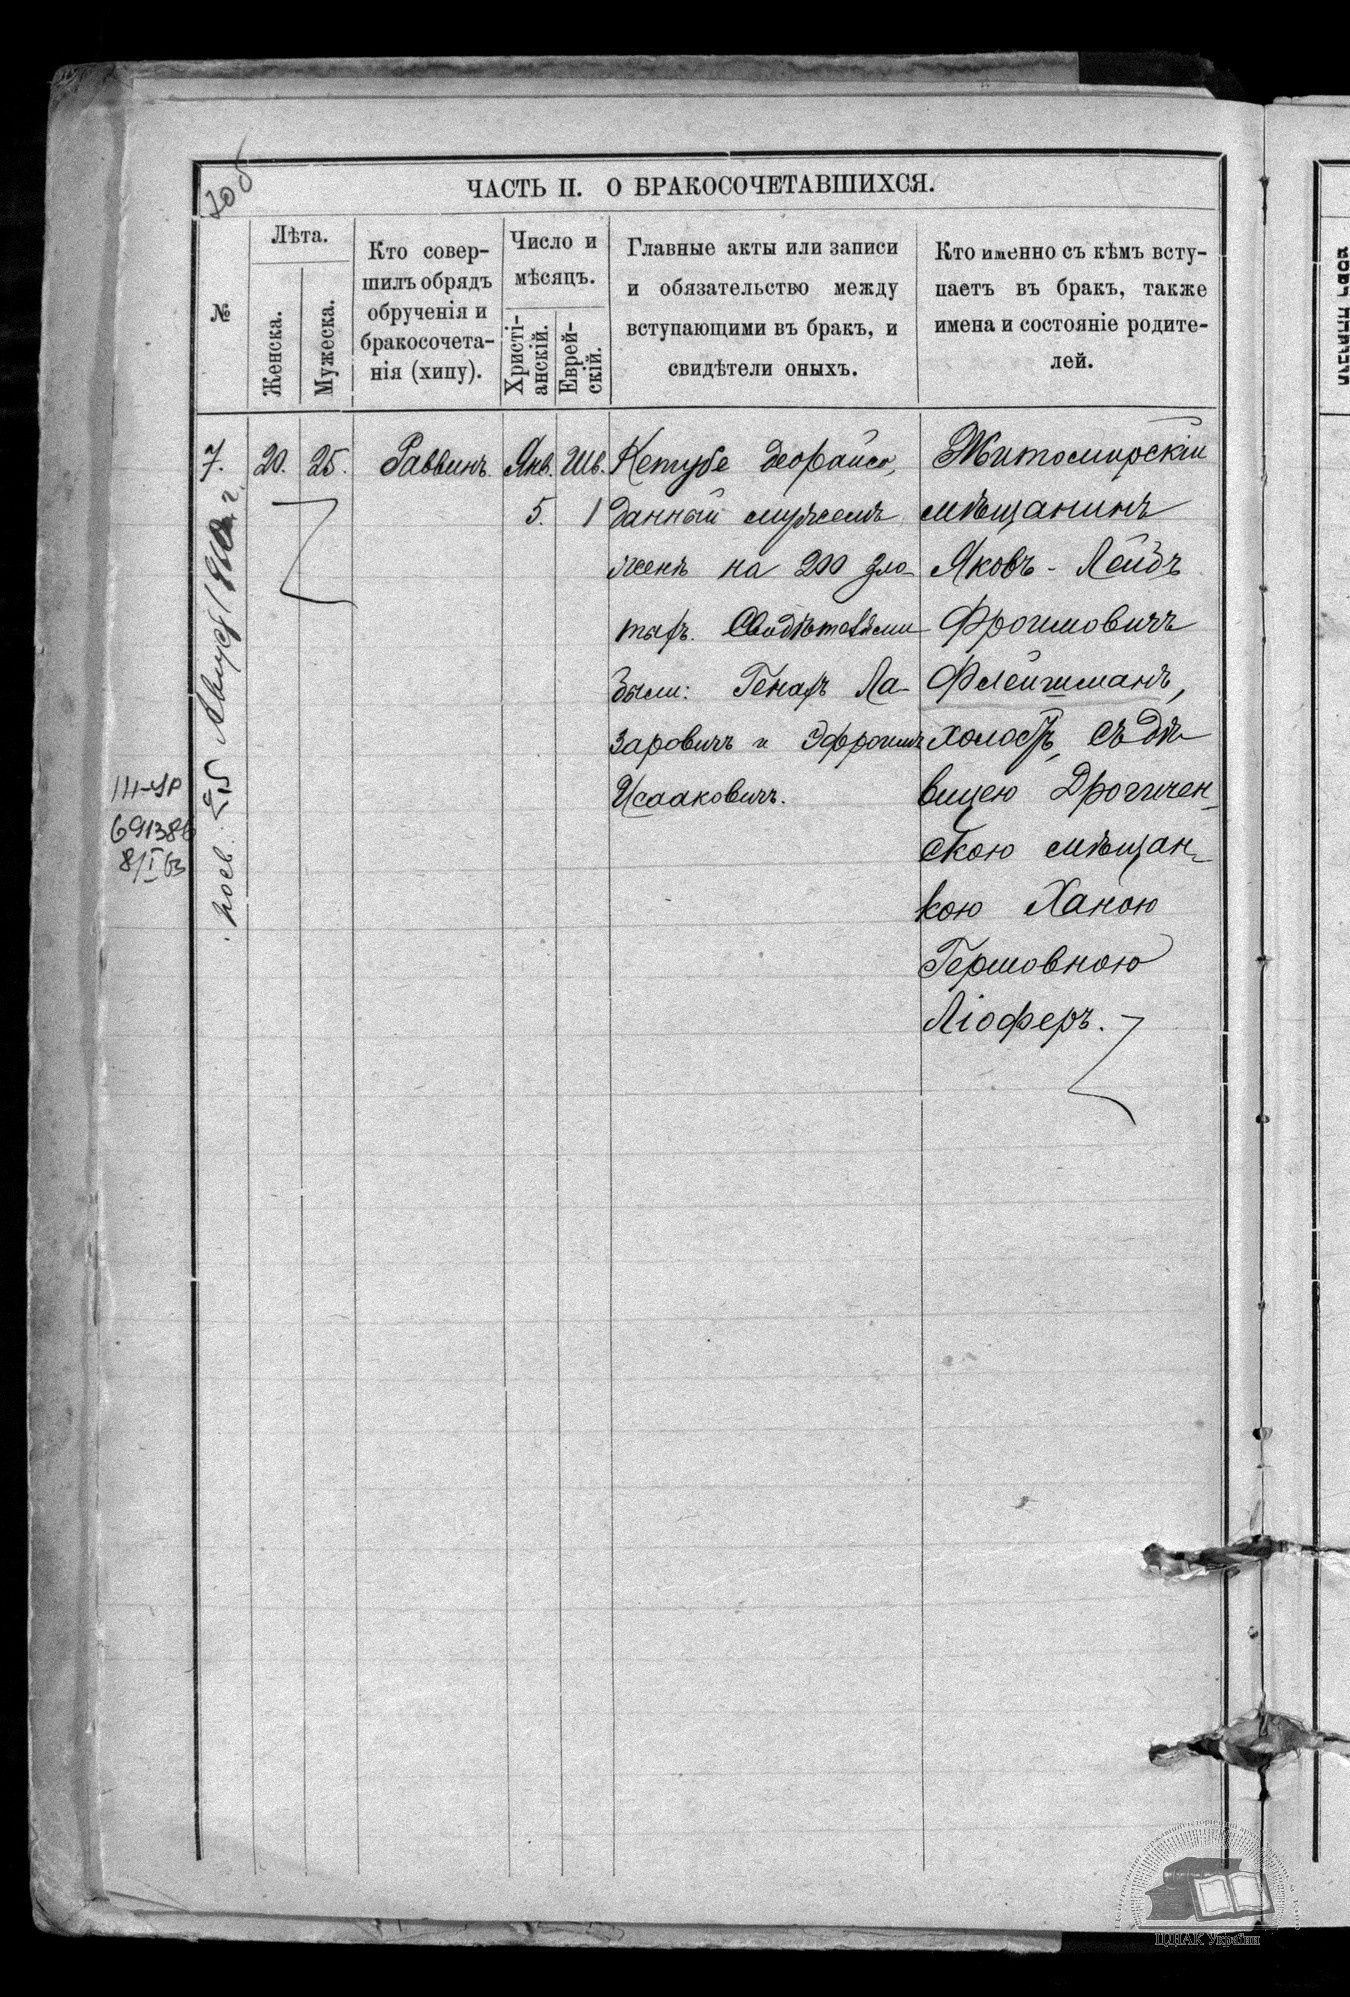 ЧАСТЬ II. О БРАКОСОЧЕТАВШИХСЯ.
№
Лѣта.
Женска.
Мужеска.
Кто совер-
шилъ обрядъ
обрученія и
бракосочета-
нія (хипу).
Число и
мѣсяцъ.
Христі-
анскій.
Еврей-
скій.
Главные акты или записи
и обязательство между
вступающими въ бракъ, и
свидѣтели оныхъ.
Кто именно съ кѣмъ всту-
паетъ въ бракъ, также
имена и состояніе родите-
лей.
7.
20.
25.
Раввинъ.
Янв.
5.
Шв.
1
Кетубе деорайсо,
данный мужемъ
женѣ на 200 зло-
тыхъ. Свидѣтелями
были: Генахъ Ла-
заровичъ и Эфроимъ
Исааковичъ.
Житомирскій
мѣщанинъ
Яковъ-Лейбъ
Фроимовичъ
Флейшманъ,
холостъ, съ дѣ-
вицею Дрогичен-
скою мѣщан-
кою Ханою
Гершовною
Ліоферъ.
25 Август
691386
8/I 63
ЦДІАК України